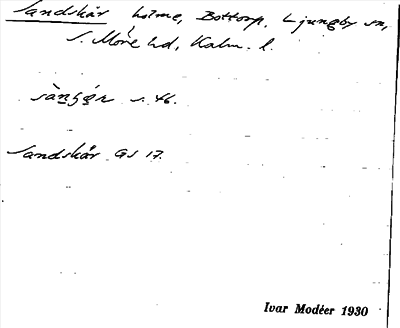 Sandskär holme, Bottorp, Ljungby sn,
S. Möre hd, Kalm. l.
s. 46.
Sandskär GS 17.
Ivar Modéer 1930